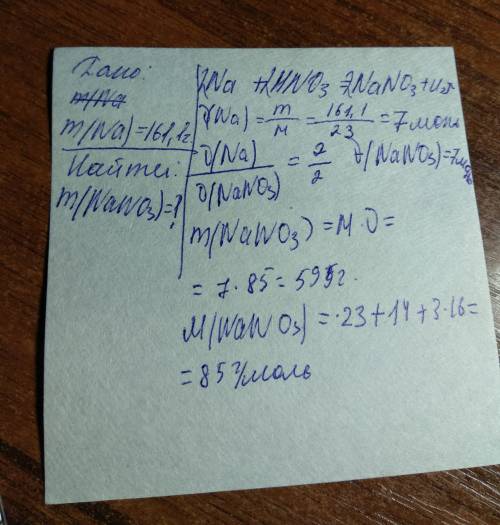 Дано:
m(Na) = 161,1г
Найти:
m(NaNO3) = ?
2Na + 2HNO3 = 2NaNO3 + H2↑
ν(Na) = m/M = 161,1/23 = 7 моль
ν(Na)/ν(NaNO3) = 2/2 ν(NaNO3) = 7 моль
m(NaNO3) = M · ν =
= 7 · 85 = 595г.
M(NaNO3) = 23 + 14 + 3 · 16 =
= 85 г/моль